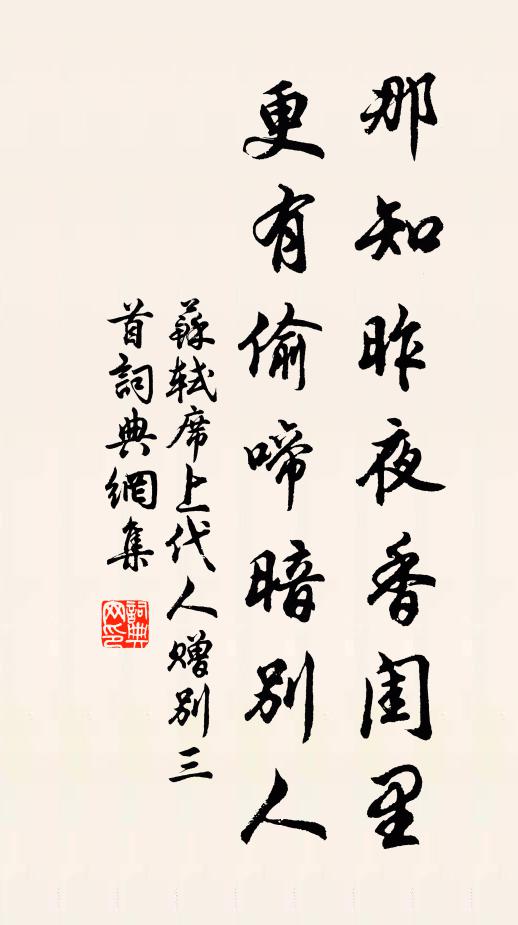 那知昨夜香闺里
更有偷啼暗别人
蘇軾席上代人赠别三
首詞典網集
詞典
网印